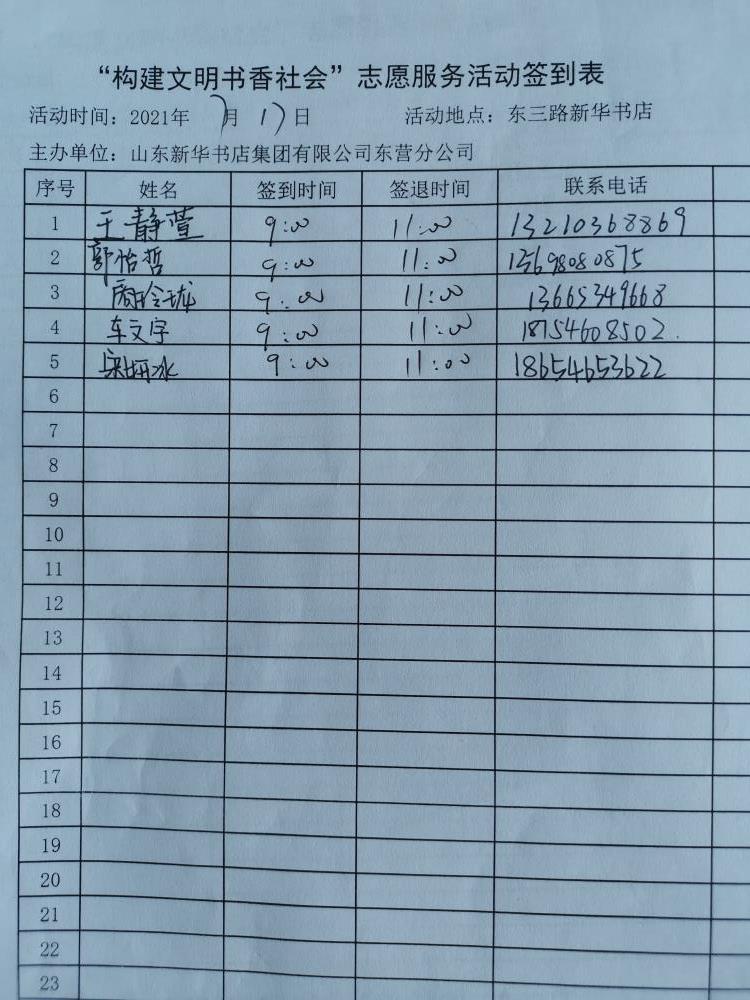 “构建文明书香社会”志愿服务活动签到表
活动时间：2021年 7月 17日 活动地点：东三路新华书店
主办单位：山东新华书店集团有限公司东营分公司
序号 姓名 签到时间 签退时间 联系电话
1 王静萱 9:00 11:00 13210368869
2 郭怡哲 9:00 11:00 13698080875
3 周玲珑 9:00 11:00 13665349668
4 车文字 9:00 11:00 18754608502.
5 9:00 11:00 18654653622
6
7
8
9
10
11
12
13
14
15
16
17
18
19
20
21
22
23